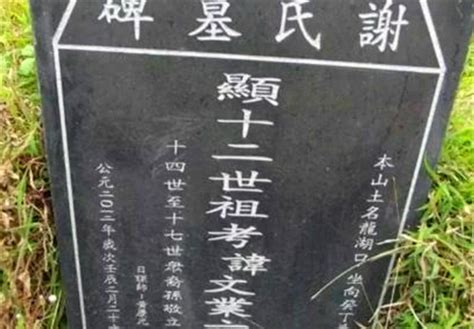 謝氏墓碑
本山土名龍湖口 坐向癸丁
顯十二世祖考諱文業
十四世至十七世眾裔孫敬立
日課師：黃
公元二〇一二年歲次壬辰二月二十